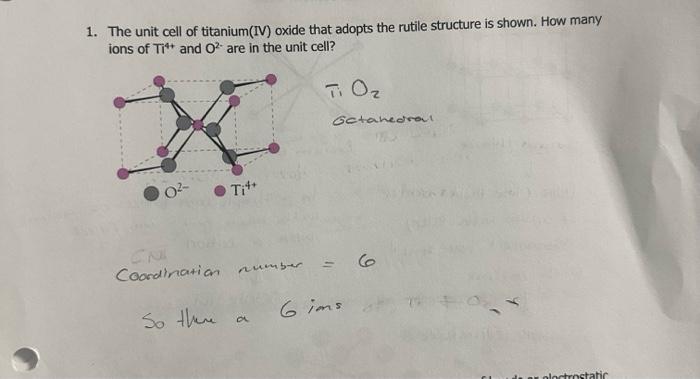 1. The unit cell of titanium(IV) oxide that adopts the rutile structure is shown. How many
ions of Ti⁴⁺ and O²⁻ are in the unit cell?
Ti O₂
Octahedral
O²⁻ Ti⁴⁺
CN
Coordination number = 6
So there a 6 ions
electrostatic